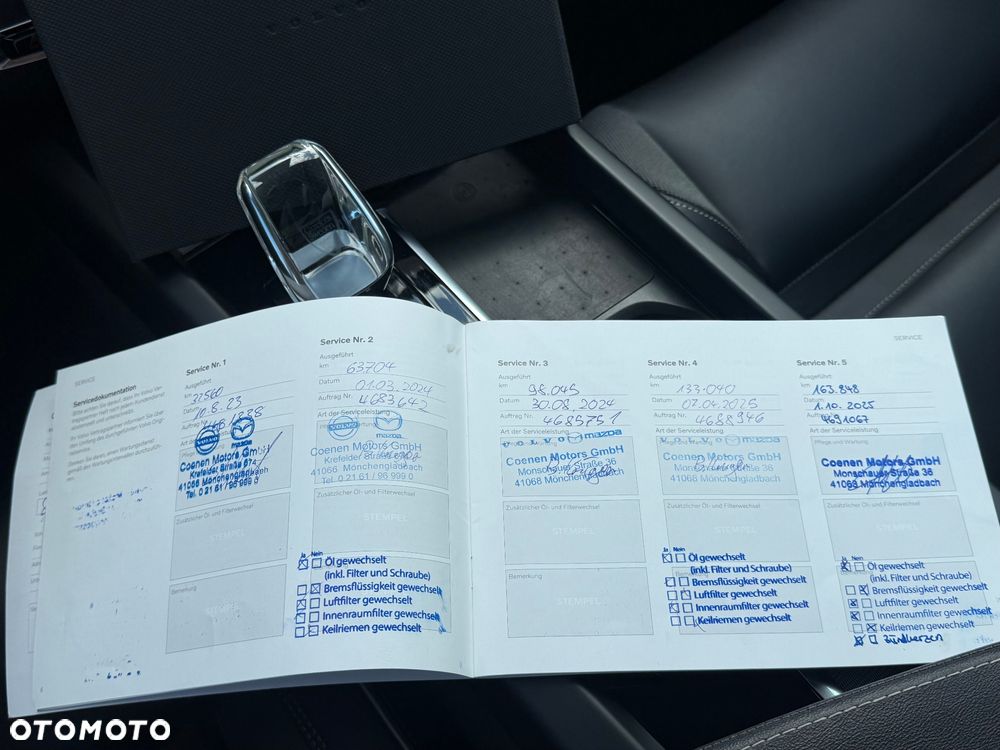 VOLVO
SERVICE
Servicedokumentation
Service Nr. 1
Ausgeführt
km
32560
Datum
10.8.23
VOLVO
mazda
Coenen Motors GmbH
Krefelder Straße 67
41066 Mönchengladbach
Tel. 0 21 61 / 96 999 0
Zusätzlicher Öl- und Filterwechsel
STEMPEL
Bemerkung
STEMPEL
Service Nr. 2
Ausgeführt
km
63704
Datum
01.03.2024
Auftrag Nr.
4683642
Art der Serviceleistung
VOLVO
mazda
Coenen Motors GmbH
Krefelder Straße
41066 Mönchengladbach
Tel. 0 21 61 / 96 999 0
Zusätzlicher Öl- und Filterwechsel
STEMPEL
Ja Nein
Öl gewechselt
(inkl. Filter und Schraube)
Bremsflüssigkeit gewechselt
Luftfilter gewechselt
Innenraumfilter gewechselt
Keilriemen gewechselt
Service Nr. 3
Ausgeführt
km
98.045
Datum
30.08.2024
Auftrag Nr.
4685751
Art der Serviceleistung
VOLVO mazda
Coenen Motors GmbH
Monschauer Straße 36
41068 Mönchengladbach
Zusätzlicher Öl- und Filterwechsel
STEMPEL
Bemerkung
STEMPEL
Service Nr. 4
Ausgeführt
km
133.040
Datum
07.04.2025
Auftrag Nr.
4688946
Art der Serviceleistung
VOLVO mazda
Coenen Motors GmbH
Monschauer Straße 36
41068 Mönchengladbach
Zusätzlicher Öl- und Filterwechsel
STEMPEL
Ja Nein
Öl gewechselt
(inkl. Filter und Schraube)
Bremsflüssigkeit gewechselt
Luftfilter gewechselt
Innenraumfilter gewechselt
Keilriemen gewechselt
SERVICE
Service Nr. 5
Ausgeführt
km
163.848
Datum
1.10.2025
Auftrag Nr.
4691067
Art der Serviceleistung
Pflege und Wartung
Coenen Motors GmbH
Monschauer Straße 36
41068 Mönchengladbach
Zusätzlicher Öl- und Filterwechsel
STEMPEL
Ja Nein
Öl gewechselt
(inkl. Filter und Schraube)
Bremsflüssigkeit gewechselt
Luftfilter gewechselt
Innenraumfilter gewechselt
Keilriemen gewechselt
Zündkerzen
OTOMOTO